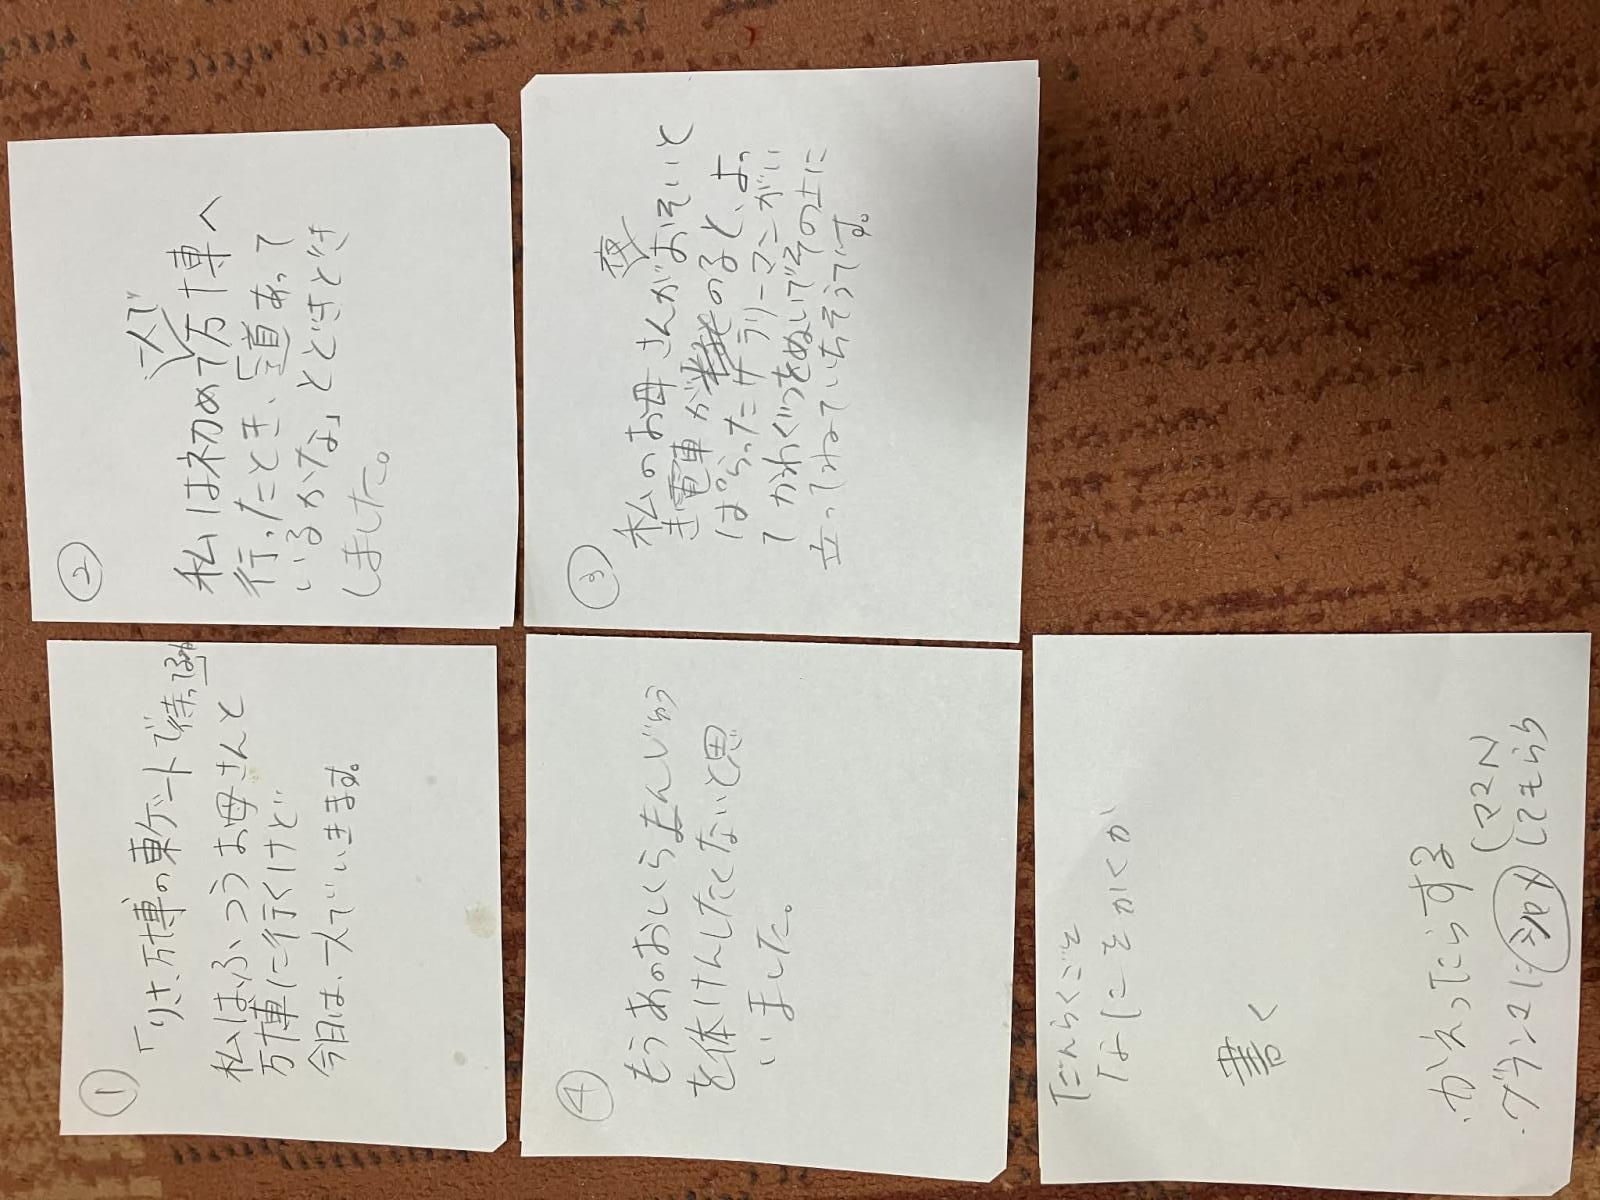 ①
「りさ、万博の東ゲートで待ってるね」
私は、ふつうお母さんと
万博に行くけど
今日は、一人でいきます。
②
一人で
私は初めて万博へ
行ったとき、「道あって
いるかな」とどきどき
しました。
③
夜
私のお母さんがおそいと
き電車がのると、よ
っぱらったサラリーマンがい
てかわぐつをぬいでその上に
立ってねていたそうです。
④
もうあのおしくらまんじゅう
を体けんしたくないと思
いました。
だんらくごと
なにをかくか
書く
・かえってたらする
・ブランコに
してもらう